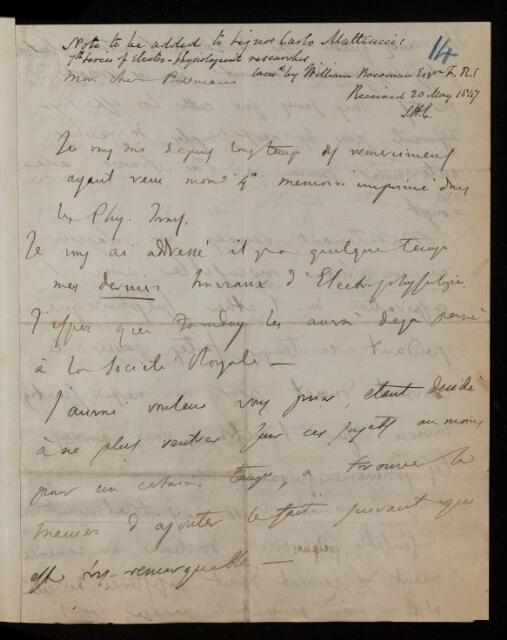 Note to be added to Signor Carlo Matteucci's
14
7th Series of Electro-physiological researches
Mon cher Bowman
com^d by William Bowman Esq^re F.R.S
Received 20 May 1847
S.H.C.
Je vous dois depuis longtemps des remerciments
ayant reçu mon 4^e memoire imprimé dans
les Phy. Trans.
Je vous ai adressé il y a quelque temps
mes derniers travaux d'Electrophysiologie.
J'espere que Faraday les aura deja passé
à la Societé Royale —
J'aurai voulu vous prier, etant decidé
à ne plus rentrer sur ces sujets au moins
pour un certain temps, a trouver la
maniere d'ajouter le fait suivant qui
est très-remarquable. —